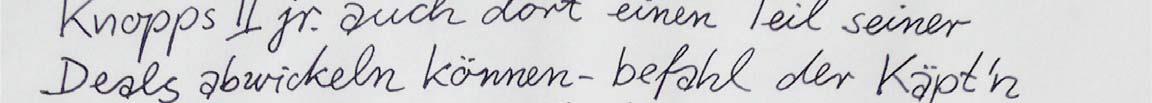 Knopps II jr. auch dort einen Teil seiner
Deals abwickeln können - befahl der Käpt'n